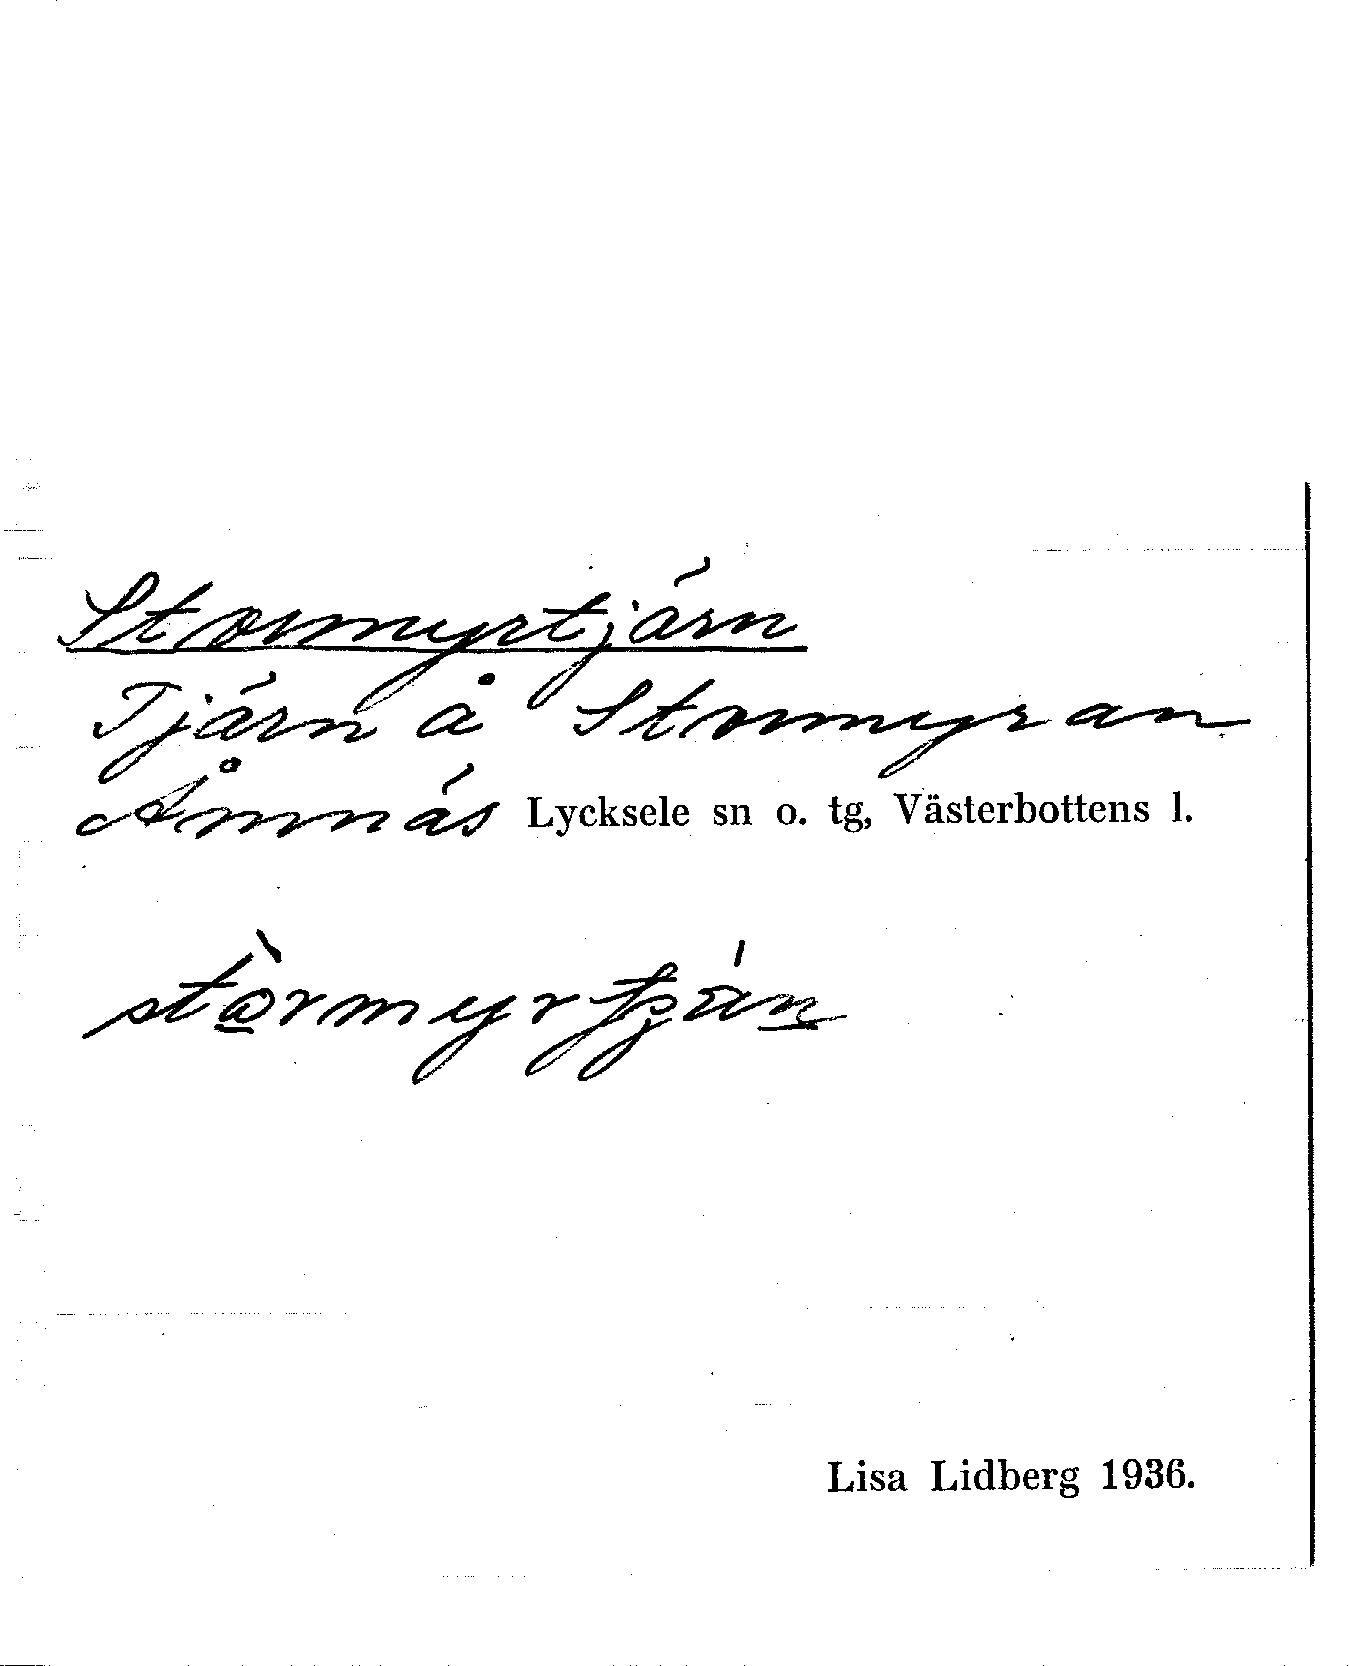 Stormyrtjärn
Tjärn å Stormyran
Åmnäs Lycksele sn o. tg, Västerbottens l.
stòrmyrtjä́n
Lisa Lidberg 1936.